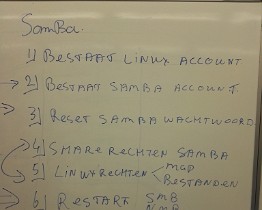 SAMBA.
1) BESTAAT LINUX ACCOUNT
2) BESTAAT SAMBA ACCOUNT.
3) RESET SAMBA WACHTWOORD
4) SHARE RECHTEN SAMBA
5) LINUX RECHTEN MAP
BESTANDEN
6) RESTART SMB
NMB